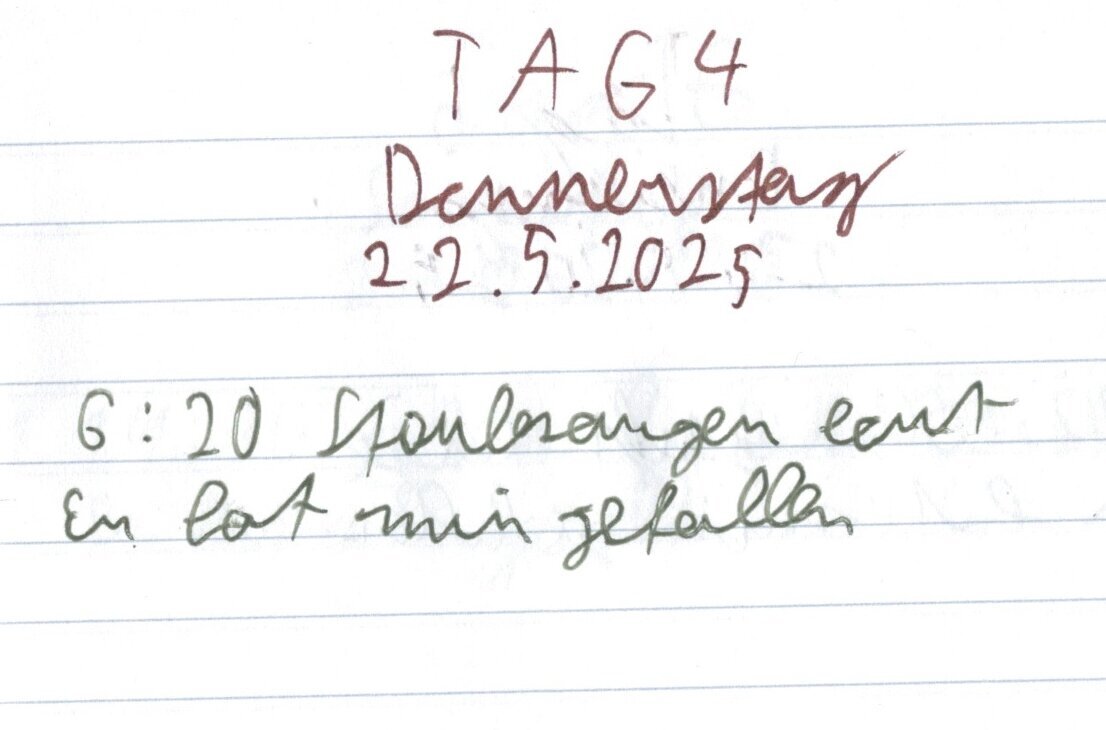 TAG 4
Donnerstag
22.5.2025
6:20 Staubsaugen laut
Er hat mir gefallen